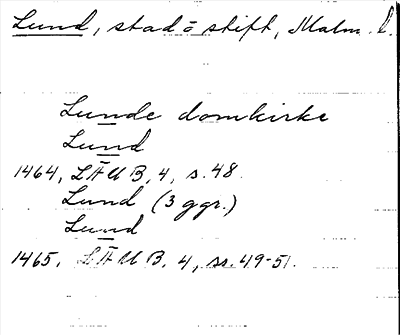 Lund, stad o stift, Malm. l.
Lunde domkirke
Lund
1464, LÄUB, 4, s. 48.
Lund (3 ggr.)
Lund
1465, LÄUB. 4, ss. 49-51.